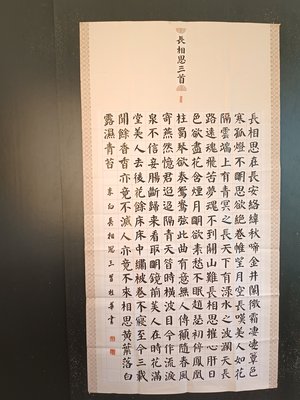 長相思三首
長相思在長安絡緯秋啼金井闌微霜淒淒簟色
寒孤燈不明思欲絕卷帷望月空長嘆美人如花
隔雲端上有青冥之長天下有淥水之波瀾天長
路遠魂飛苦夢魂不到關山難長相思摧心肝日
色欲盡花含煙月明欲素愁不眠趙瑟初停鳳凰
柱蜀琴欲奏鴛鴦弦此曲有意無人傳願隨春風
寄燕然憶君迢迢隔青天昔時橫波目今作流淚
泉不信妾腸斷歸來看取明鏡前美人在時花滿
堂美人去後花餘床床中繡被卷不寢至今三載
聞餘香香亦竟不滅人亦竟不來相思黃葉落白
露濕青苔 李白長相思三首 華書